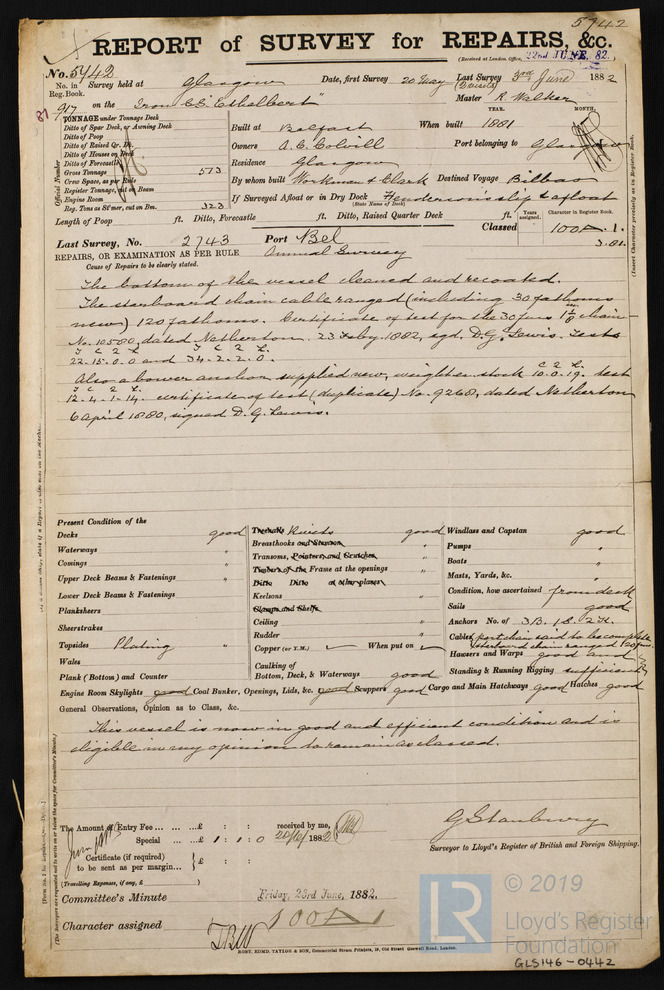 5742
REPORT of SURVEY for REPAIRS, &c.
(Received at London Office, 22nd JUNE 82.
No. 5742
No. in Reg. Book. Survey held at Glasgow Date, first Survey 20 May Last Survey 3rd June 1882
917 on the Iron SS "Ethelbert" Master R. Walker
81
TONNAGE under Tonnage Deck
Ditto of Spar Deck, or Awning Deck
Ditto of Poop
Ditto of Raised Qr. Deck
Ditto of Houses on Deck
Ditto of Forecastle
Gross Tonnage 573
Crew Space, as per Rule
Register Tonnage, cut on Beam
Engine Room
Reg. Tons as St'mer, cut on Bm. 323
YEAR. MONTH.
Built at Belfast When built 1881
Owners A. C. Colvill Port belonging to Glasgow
Residence Glasgow
By whom built Workman & Clark Destined Voyage Bilbao
If Surveyed Afloat or in Dry Dock Henderson's slip & afloat
(State Name of Dock)
Length of Poop ft. Ditto, Forecastle ft. Ditto, Raised Quarter Deck ft.
Years assigned. Character in Register Book.
Classed 100A.1.
3.81.
Last Survey, No. 2743 Port Bel
REPAIRS, OR EXAMINATION AS PER RULE Annual Survey
Cause of Repairs to be clearly stated.
The bottom of the vessel cleaned and recoated.
The starboard chain cable ranged (including 30 fathoms
new) 120 fathoms. Certificate of test for the 30 fms 1 1/8 chain
No. 10580, dated Netherton 23 Feby. 1882, sgd. D. G. Lewis. Tests
22-15-0-0 and 34-2-2-0.
Also a bower anchor supplied new, weight ex. stock 10-0-19. test
12-4-1-14. certificate of test (duplicate) No. 9268, dated Netherton
6 April 1880, signed D. G. Lewis.
Present Condition of the
Decks good
Waterways "
Comings "
Upper Deck Beams & Fastenings "
Lower Deck Beams & Fastenings
Planksheers
Sheerstrakes
Topsides Plating "
Wales
Plank (Bottom) and Counter
Treenails Rivets good
Breasthooks and Stemson "
Transoms, Pointers and Crutches "
Timbers of the Frame at the openings "
Ditto Ditto at other planes
Keelsons "
Clamps and Shelfs
Ceiling "
Rudder "
Copper (or Y.M.) When put on
Caulking of
Bottom, Deck, & Waterways good
Windlass and Capstan good
Pumps "
Boats "
Masts, Yards, &c. "
Condition, how ascertained from deck
Sails good
Anchors No. of 3B. 1S. 2K.
Cables port chain said to be complete
starboard chain ranged 120 fms.
Hawsers and Warps good and
Standing & Running Rigging sufficient
Engine Room Skylights good Coal Bunker, Openings, Lids, &c. good Scuppers good Cargo and Main Hatchways good Hatches good
General Observations, Opinion as to Class, &c.
This vessel is now in good and efficient condition and is
eligible in my opinion to remain as classed.
The Amount of Entry Fee ... £ : : received by me,
Special ... £ 1 : 1 : 0 20/6/ 1882
Certificate (if required)
to be sent as per margin... £ : :
(Travelling Expenses, if any, £ )
G Stanbury
Surveyor to Lloyd's Register of British and Foreign Shipping.
Committee's Minute Friday, 23rd June, 1882.
Character assigned 100A1
ROBT. EDMD. TAYLOR & SON, Commercial Steam Printers, 19, Old Street Goswell Road, London.
© 2019
Lloyd's Register
Foundation
GLS146-0442